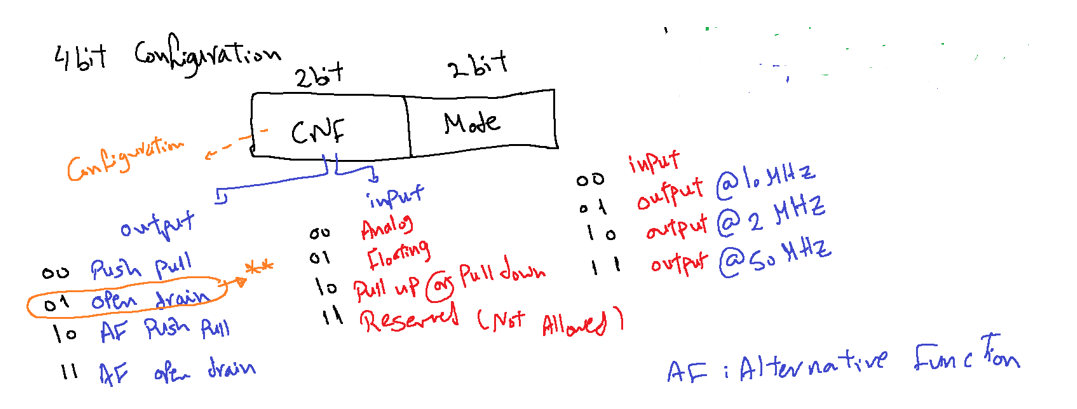 4bit Configuration
2bit 2bit
CNF Mode
Configuration
output
00 Push pull
01 open drain **
10 AF Push Pull
11 AF open drain
input
00 Analog
01 Floating
10 Pull up or Pull down
11 Reserved (Not Allowed)
00 input
01 output @10 MHz
10 output @ 2 MHz
11 output @ 50 MHz
AF : Alternative Function